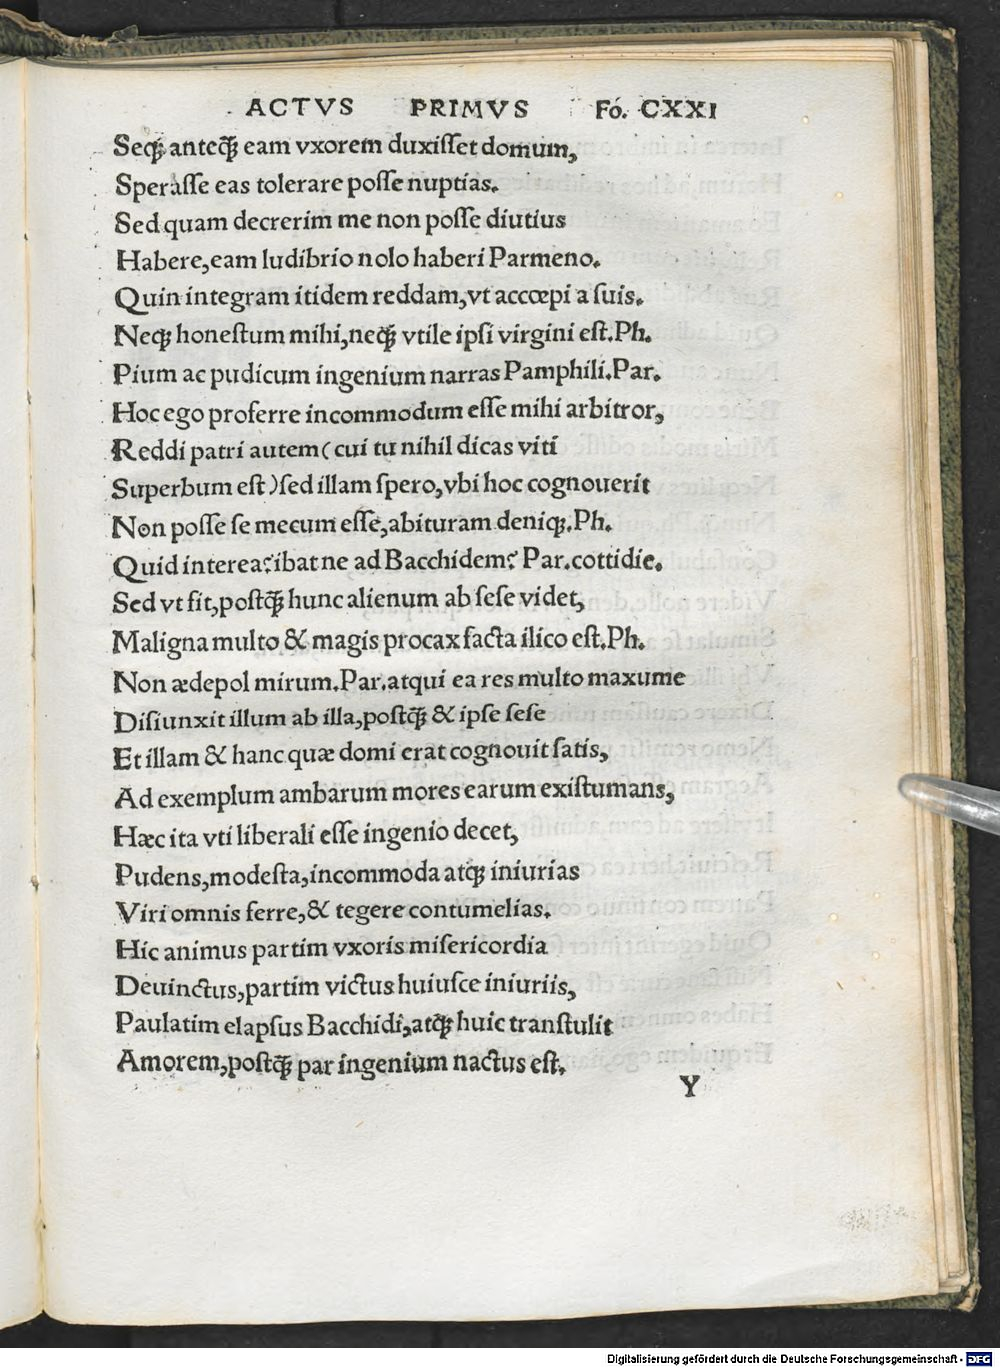 ACTVS PRIMVS Fó. CXXI
Seqꝫ anteꝗ̃ eam vxorem duxiſſet domum,
Speraſſe eas tolerare poſſe nuptias.
Sed quam decrerim me non poſſe diutius
Habere,eam ludibrio nolo haberi Parmeno.
Quin integram itidem reddam,vt accœpi a ſuis.
Neqꝫ honeſtum mihi,neqꝫ vtile ipſi virgini eſt.Ph.
Pium ac pudicum ingenium narras Pamphili.Par.
Hoc ego proferre incommodum eſſe mihi arbitror,
Reddi patri autem(cui tu nihil dicas viti
Superbum eſt)ſed illam ſpero,vbi hoc cognouerit
Non poſſe ſe mecum eſſe,abituram deniqꝫ.Ph.
Quid interea?ibat ne ad Bacchidem? Par.cottidie.
Sed vt fit,poſtꝗ̃ hunc alienum ab ſeſe videt,
Maligna multo & magis procax facta ilico eſt.Ph.
Non ædepol mirum.Par.atqui ea res multo maxume
Diſiunxit illum ab illa,poſtꝗ̃ & ipſe ſeſe
Et illam & hanc quæ domi erat cognouit ſatis,
Ad exemplum ambarum mores earum exiſtumans,
Hæc ita vti liberali eſſe ingenio decet,
Pudens,modeſta,incommoda atqꝫ iniurias
Viri omnis ferre,& tegere contumelias.
Hic animus partim vxoris miſericordia
Deuinctus,partim victus huiuſce iniuriis,
Paulatim elapſus Bacchidi,atqꝫ huic tranſtulit
Amorem,poſtꝗ̃ par ingenium nactus eſt.
Y
Digitalisierung gefördert durch die Deutsche Forschungsgemeinschaft - DFG